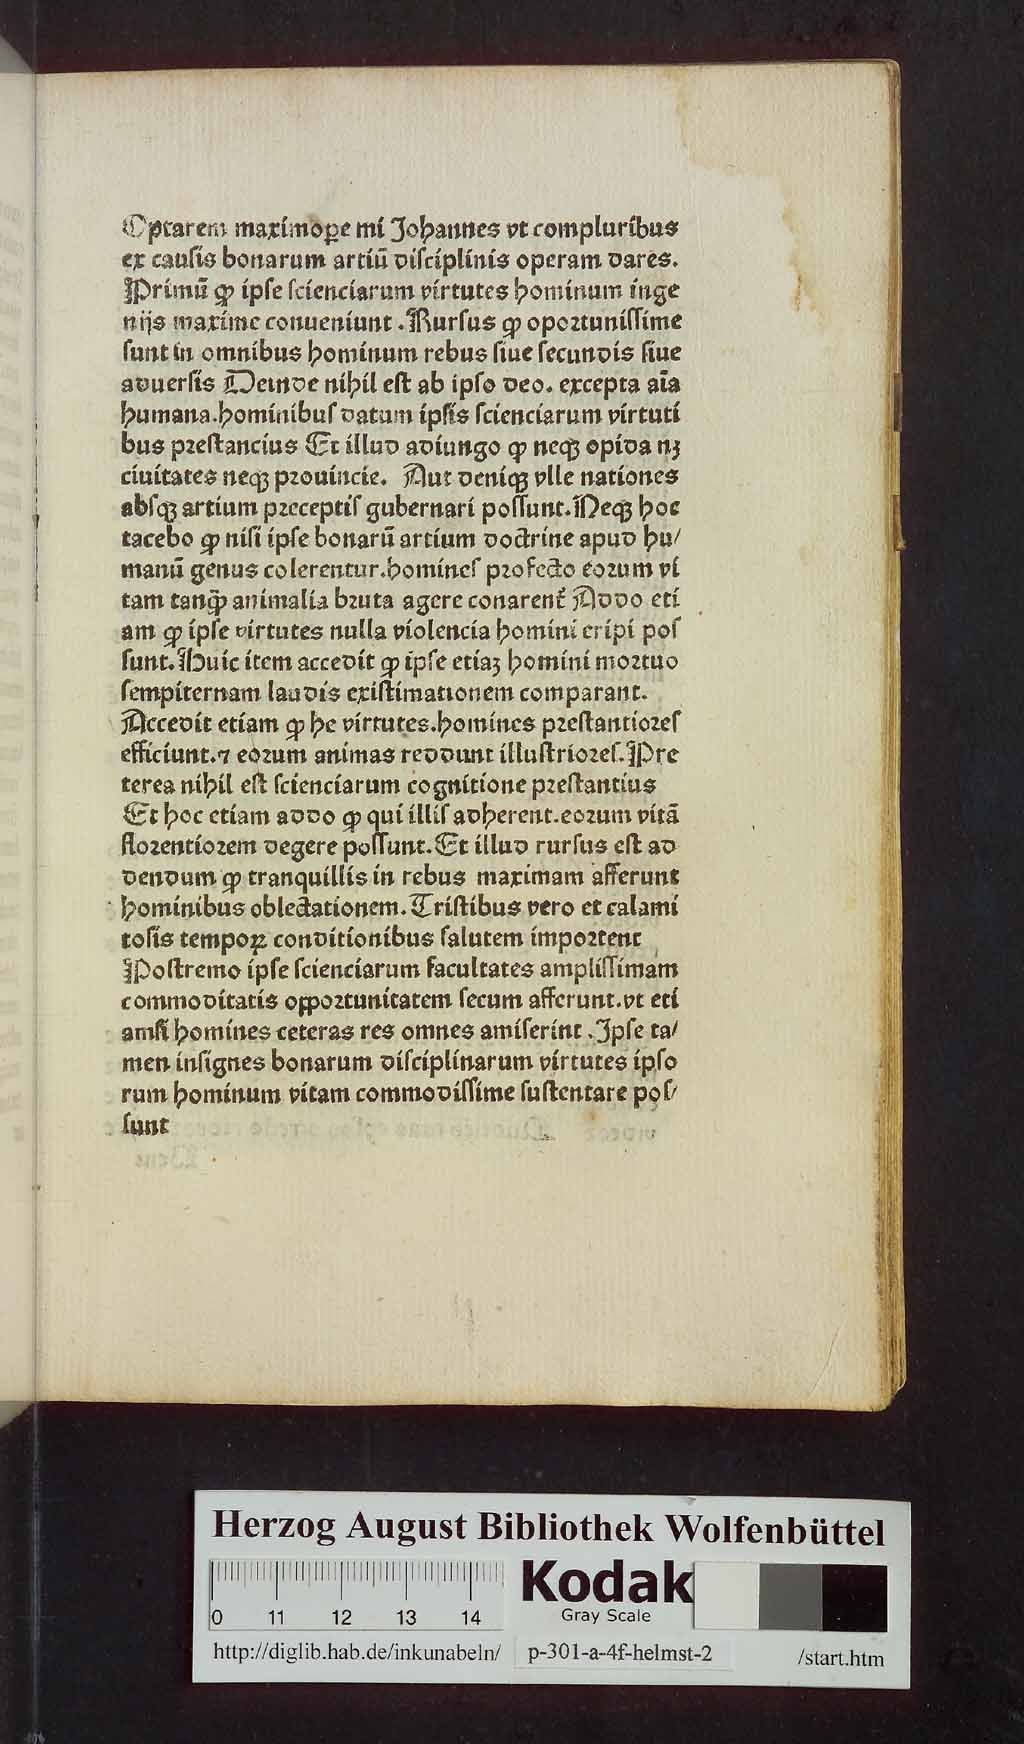 Optarem maximoꝑe mi Johannes vt compluribus
ex causis bonarum artiū disciplinis operam dares.
Primū ꝙ ipse scienciarum virtutes hominum inge
nijs maxime conueniunt . Rursus ꝙ oportunissime
sunt in omnibus hominum rebus siue secundis siue
aduersis Deinde nihil est ab ipso deo. excepta aīa
humana.hominibus datum ipsis scienciarum virtuti
bus prestancius Et illud adiungo ꝙ neqꝫ opida nꝫ
ciuitates neqꝫ prouincie. Aut deniqꝫ vlle nationes
absqꝫ artium preceptis gubernari possunt. Neqꝫ hoc
tacebo ꝙ nisi ipse bonarū artium doctrine apud hu/
manū genus colerentur.homines profecto eorum vi
tam tanꝙ̄ animalia bruta agere conarent᷑ Addo eti
am ꝙ ipse virtutes nulla violencia homini eripi pos
sunt. Huic item accedit ꝙ ipse etiaꝫ homini mortuo
sempiternam laudis existimationem comparant.
Accedit etiam ꝙ he virtutes.homines prestantiores
efficiunt.⁊ eorum animas reddunt illustriores. Pre
terea nihil est scienciarum cognitione prestantius
Et hoc etiam addo ꝙ qui illis adherent.eorum vitā
florentiorem degere possunt. Et illud rursus est ad
dendum ꝙ tranquillis in rebus maximam afferunt
hominibus oblectationem. Tristibus vero et calami
tosis tempoꝝ conditionibus salutem importent
Postremo ipse scienciarum facultates amplissimam
commoditatis opportunitatem secum afferunt.vt eti
amsi homines ceteras res omnes amiserint . Ipse ta/
men insignes bonarum disciplinarum virtutes ipso
rum hominum vitam commodissime sustentare pos/
sunt
Herzog August Bibliothek Wolfenbüttel
Kodak
Gray Scale
0 11 12 13 14
http://diglib.hab.de/inkunabeln/ p-301-a-4f-helmst-2 /start.htm